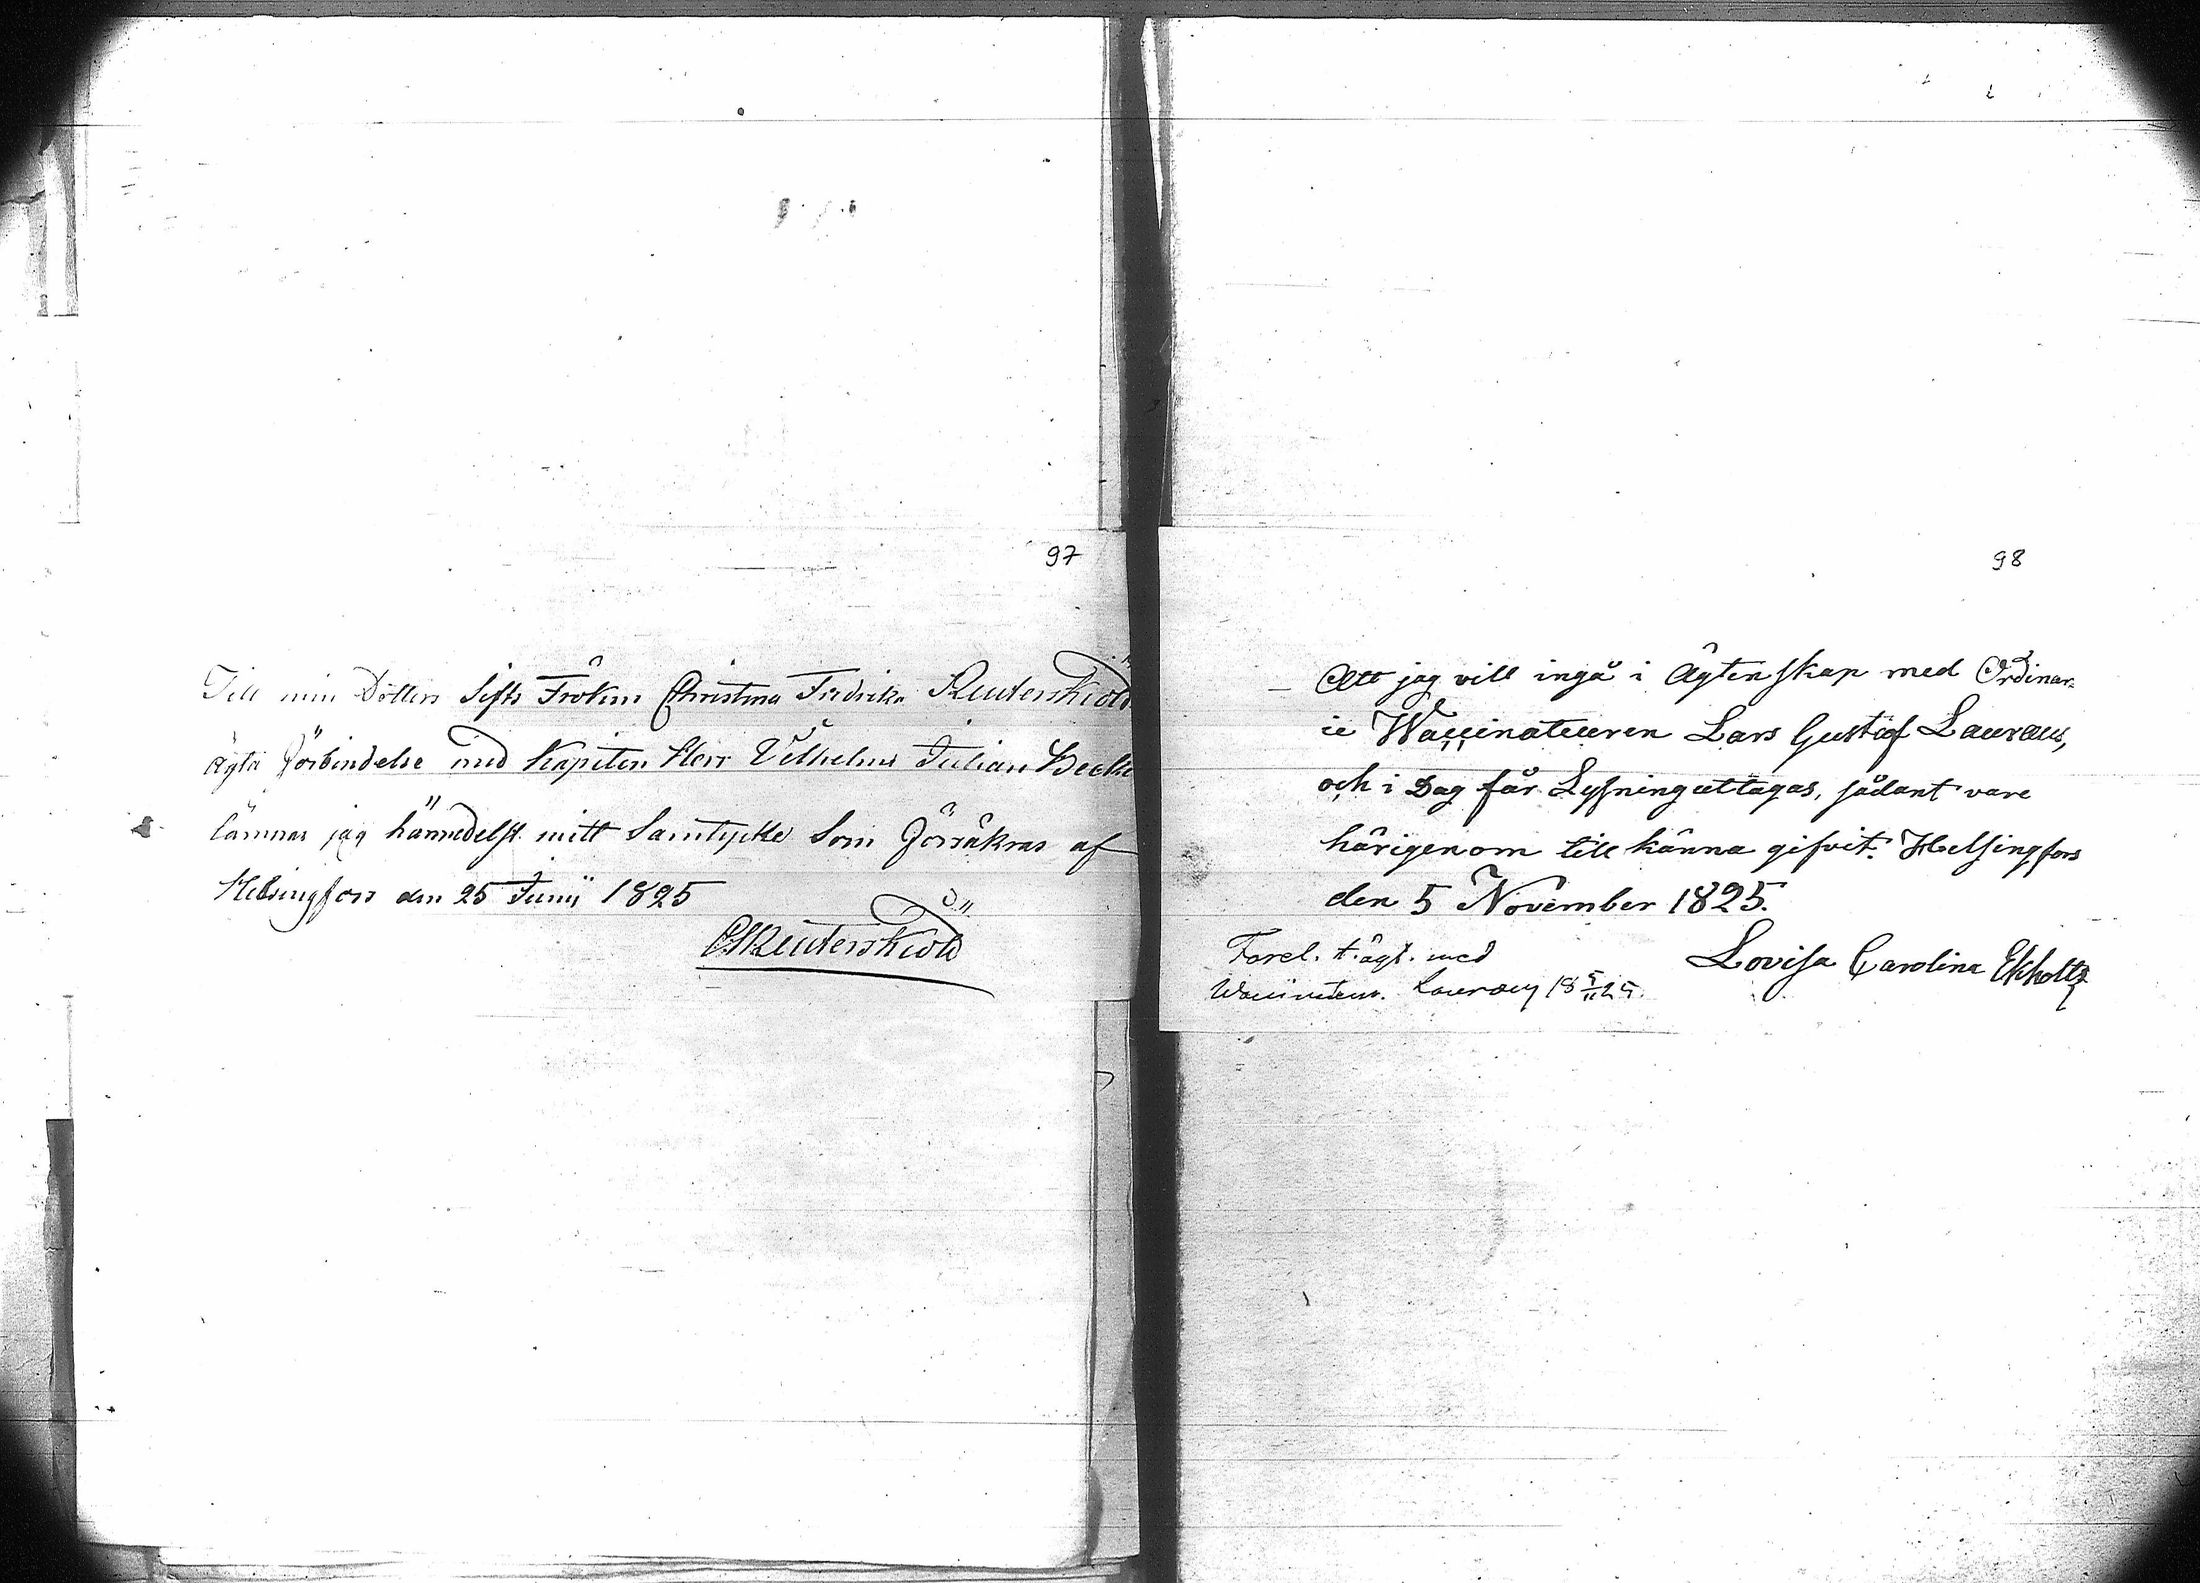 97
Till min Dotters Sifts Fröken Christina Fredrika Reuterskiöld
ägta förbindelse med Kapiten Herr Vilhelm Julian Becke
lämnar jag härmedelst mitt Samtycke Som försäkras af
Helsingfors den 25 Junij 1825
Reuterskiöld
98
Att jag vill ingå i Ägtenskap med Ordinar=
ie Waccinateuren Lars Gustaf Lauraus,
och i Dag får Lysning uttagas, sådant vare
härigenom till känna gifvit. Helsingfors
den 5 November 1825.
Lovisa Carolina Ekholtz
med
Waccinateur. 18 5/11 25.